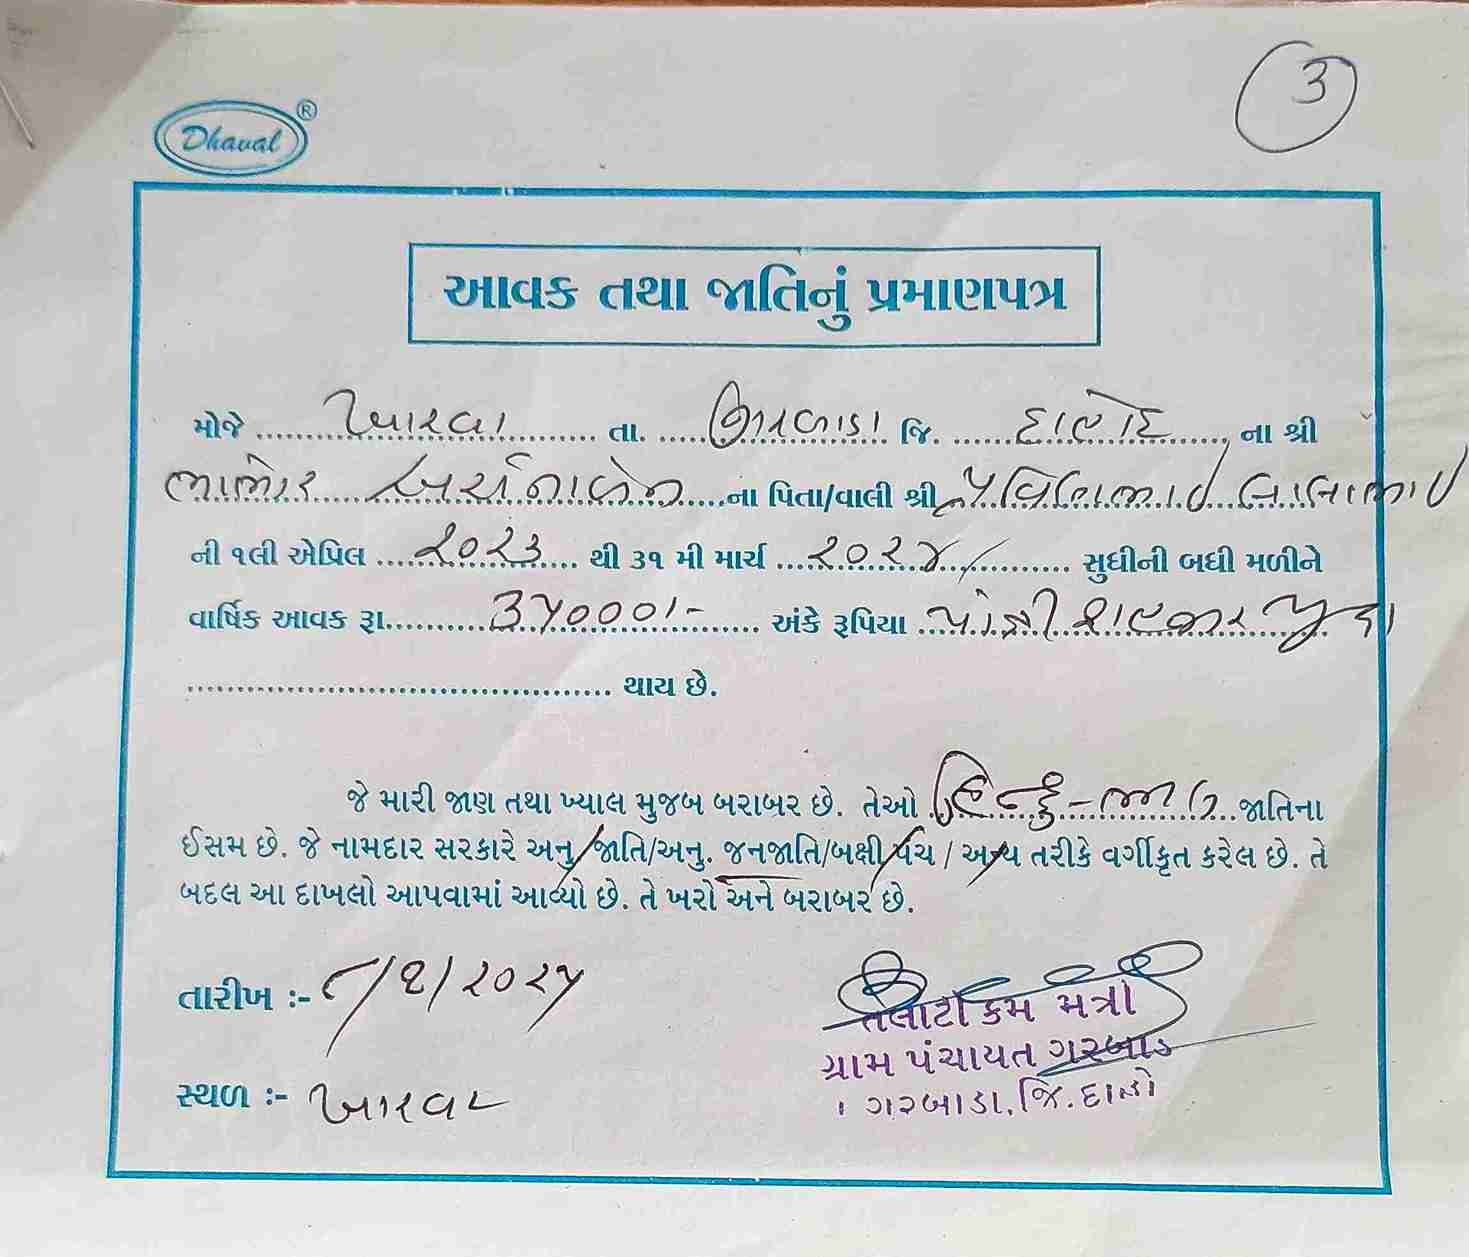 3
Dhaval ®
આવક તથા જાતિનું પ્રમાણપત્ર
મોજે ખારવા તા. ગરબાડા જિ. દાહોદ ના શ્રી
ભાભોર અર્ચનાબેન ના પિતા/વાલી શ્રી પ્રવિણભાઈ બાબાભાઈ
ની ૧લી એપ્રિલ ૨૦૨૩ થી ૩૧ મી માર્ચ ૨૦૨૪/ સુધીની બધી મળીને
વાર્ષિક આવક રૂા. ૩૫૦૦૦/- અંકે રૂપિયા પાંત્રી હજાર પુરા
થાય છે.
જે મારી જાણ તથા ખ્યાલ મુજબ બરાબર છે. તેઓ હિન્દુ-ભીલ જાતિના
ઈસમ છે. જે નામદાર સરકારે અનુ/જાતિ/અનુ. જનજાતિ/બક્ષી પંચ / અન્ય તરીકે વર્ગીકૃત કરેલ છે. તે
બદલ આ દાખલો આપવામાં આવ્યો છે. તે ખરો અને બરાબર છે.
તારીખ :- ૮/૧/૨૦૨૫
સ્થળ :- ખારવા
તલાટી કમ મંત્રી
ગ્રામ પંચાયત ગરબાડા
ગરબાડા, જિ. દાહો